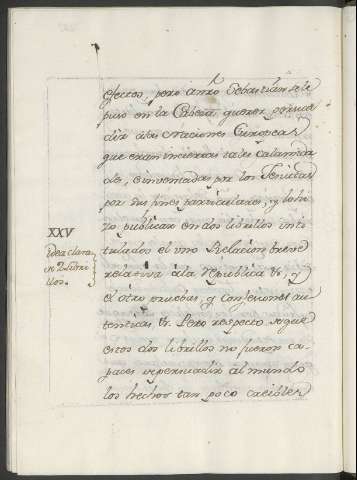 efectos, pero a nro Sebastian se le
puso en la Cabeza querer persua
dir a las Naciones Europeas
que eran inciertas tales calamida
des, e inventadas por los Jesuitas
por sus fines particulares, y lo hi
zo publicar en dos librillos inti
tulados el uno Relacion breve
relativa à la Republica &, y
el otro pruebas, y confesiones au
tenticas &. Pero respecto a que
estos dos librillos no fueron ca
paces de persuadir al mundo
los hechos tan poco creibles
XXV
Idea clara
de 2 librі
llos.